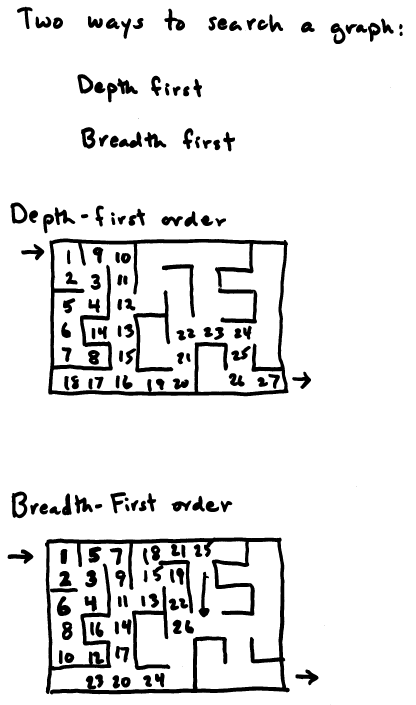 Two ways to search a graph:
Depth first
Breadth first
Depth-first order
1 9 10
2 3 11
5 4 12
6 14 13 22 23 24
7 8 15 21 25
18 17 16 19 20 26 27
Breadth-First order
1 5 7 18 21 25
2 3 9 15 19
6 4 11 13 22
8 16 14 26
10 12 17
23 20 24